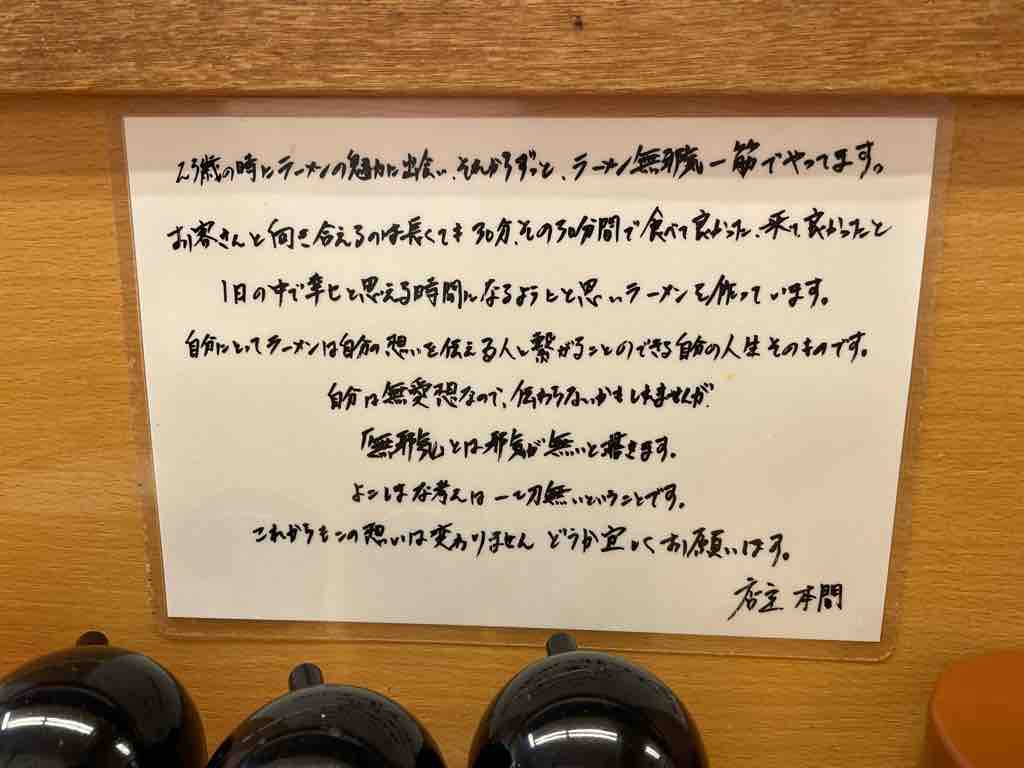 23歳の時にラーメンの魅力に出会い、それからずっと、ラーメン無邪気一筋でやってます。
お客さんと向き合えるのは長くても30分、その30分間で食べて良かった、来て良かったと
1日の中で幸せと思える時間になるようにと思いラーメンを作っています。
自分にとってラーメンは自分の想いを伝える人と繋がることのできる自分の人生そのものです。
自分は無愛想なので、伝わらないかもしれませんが
「無邪気」とは邪気が無いと書きます。
よこしまな考えは一切無いということです。
これからもこの想いは変わりません どうか宜しくお願いします。
店主 本間